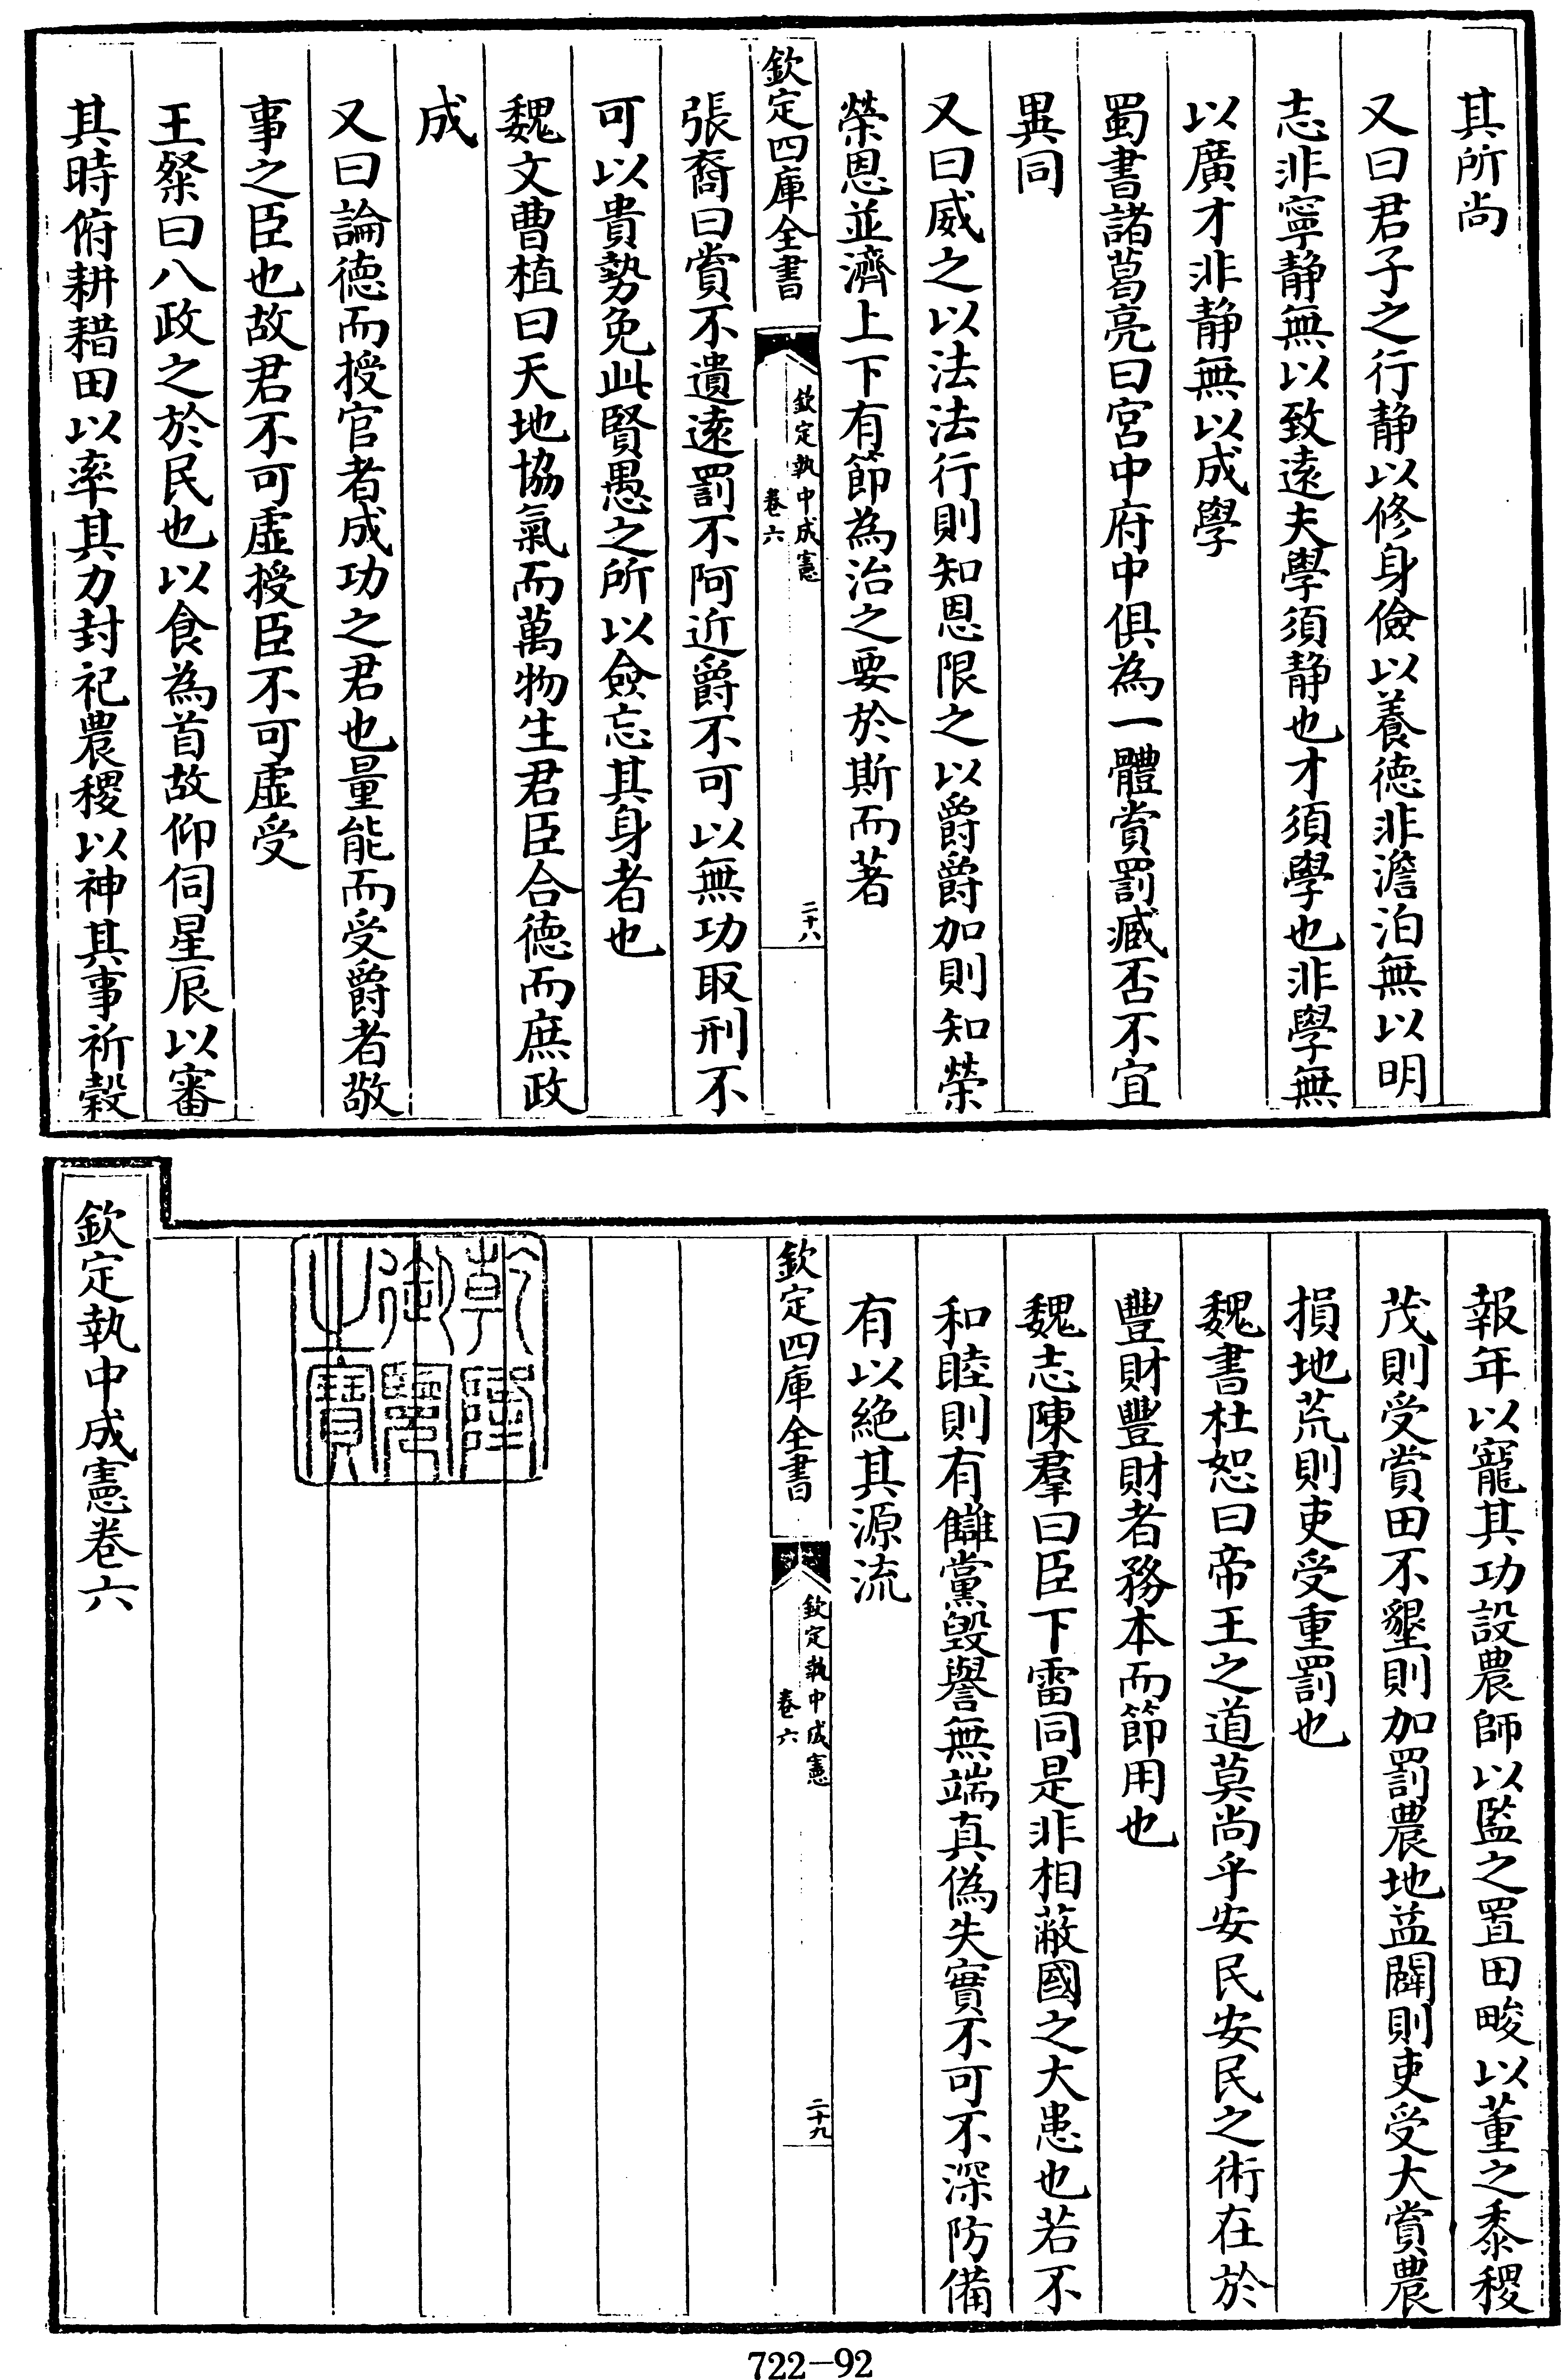 其所尚
又曰君子之行静以修身儉以養德非澹泊無以明
志非寧静無以致遠夫學須静也才須學也非學無
以廣才非静無以成學
蜀書諸葛亮曰宮中府中俱為一體賞罰臧否不宜
異同
又曰威之以法法行則知恩限之以爵爵加則知榮
榮恩並濟上下有節為治之要於斯而著
欽定四庫全書
欽定執中成憲
卷六
二十八
張裔曰賞不遺遠罰不阿近爵不可以無功取刑不
可以貴勢免此賢愚之所以僉忘其身者也
魏文曹植曰天地協氣而萬物生君臣合德而庶政
成
又曰論德而授官者成功之君也量能而受爵者敬
事之臣也故君不可虛授臣不可虛受
王粲曰八政之於民也以食為首故仰伺星辰以審
其時俯耕耤田以率其力封祀農稷以神其事祈穀
報年以寵其功設農師以監之置田畯以董之黍稷
茂則受賞田不墾則加罰農地益闢則吏受大賞農
損地荒則吏受重罰也
魏書杜恕曰帝王之道莫尚乎安民安民之術在於
豐財豐財者務本而節用也
魏志陳羣曰臣下雷同是非相蔽國之大患也若不
和睦則有讎黨毀譽無端真偽失實不可不深防備
有以絕其源流
欽定四庫全書
欽定執中成憲
卷六
二十九
乾隆
御覽
之寶
欽定執中成憲卷六
722-92